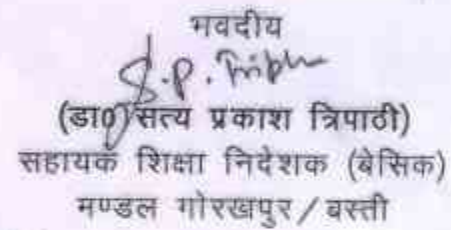 भवदीय
S.P. Tripathi
(डा0 सत्य प्रकाश त्रिपाठी)
सहायक शिक्षा निदेशक (बेसिक)
मण्डल गोरखपुर / बस्ती